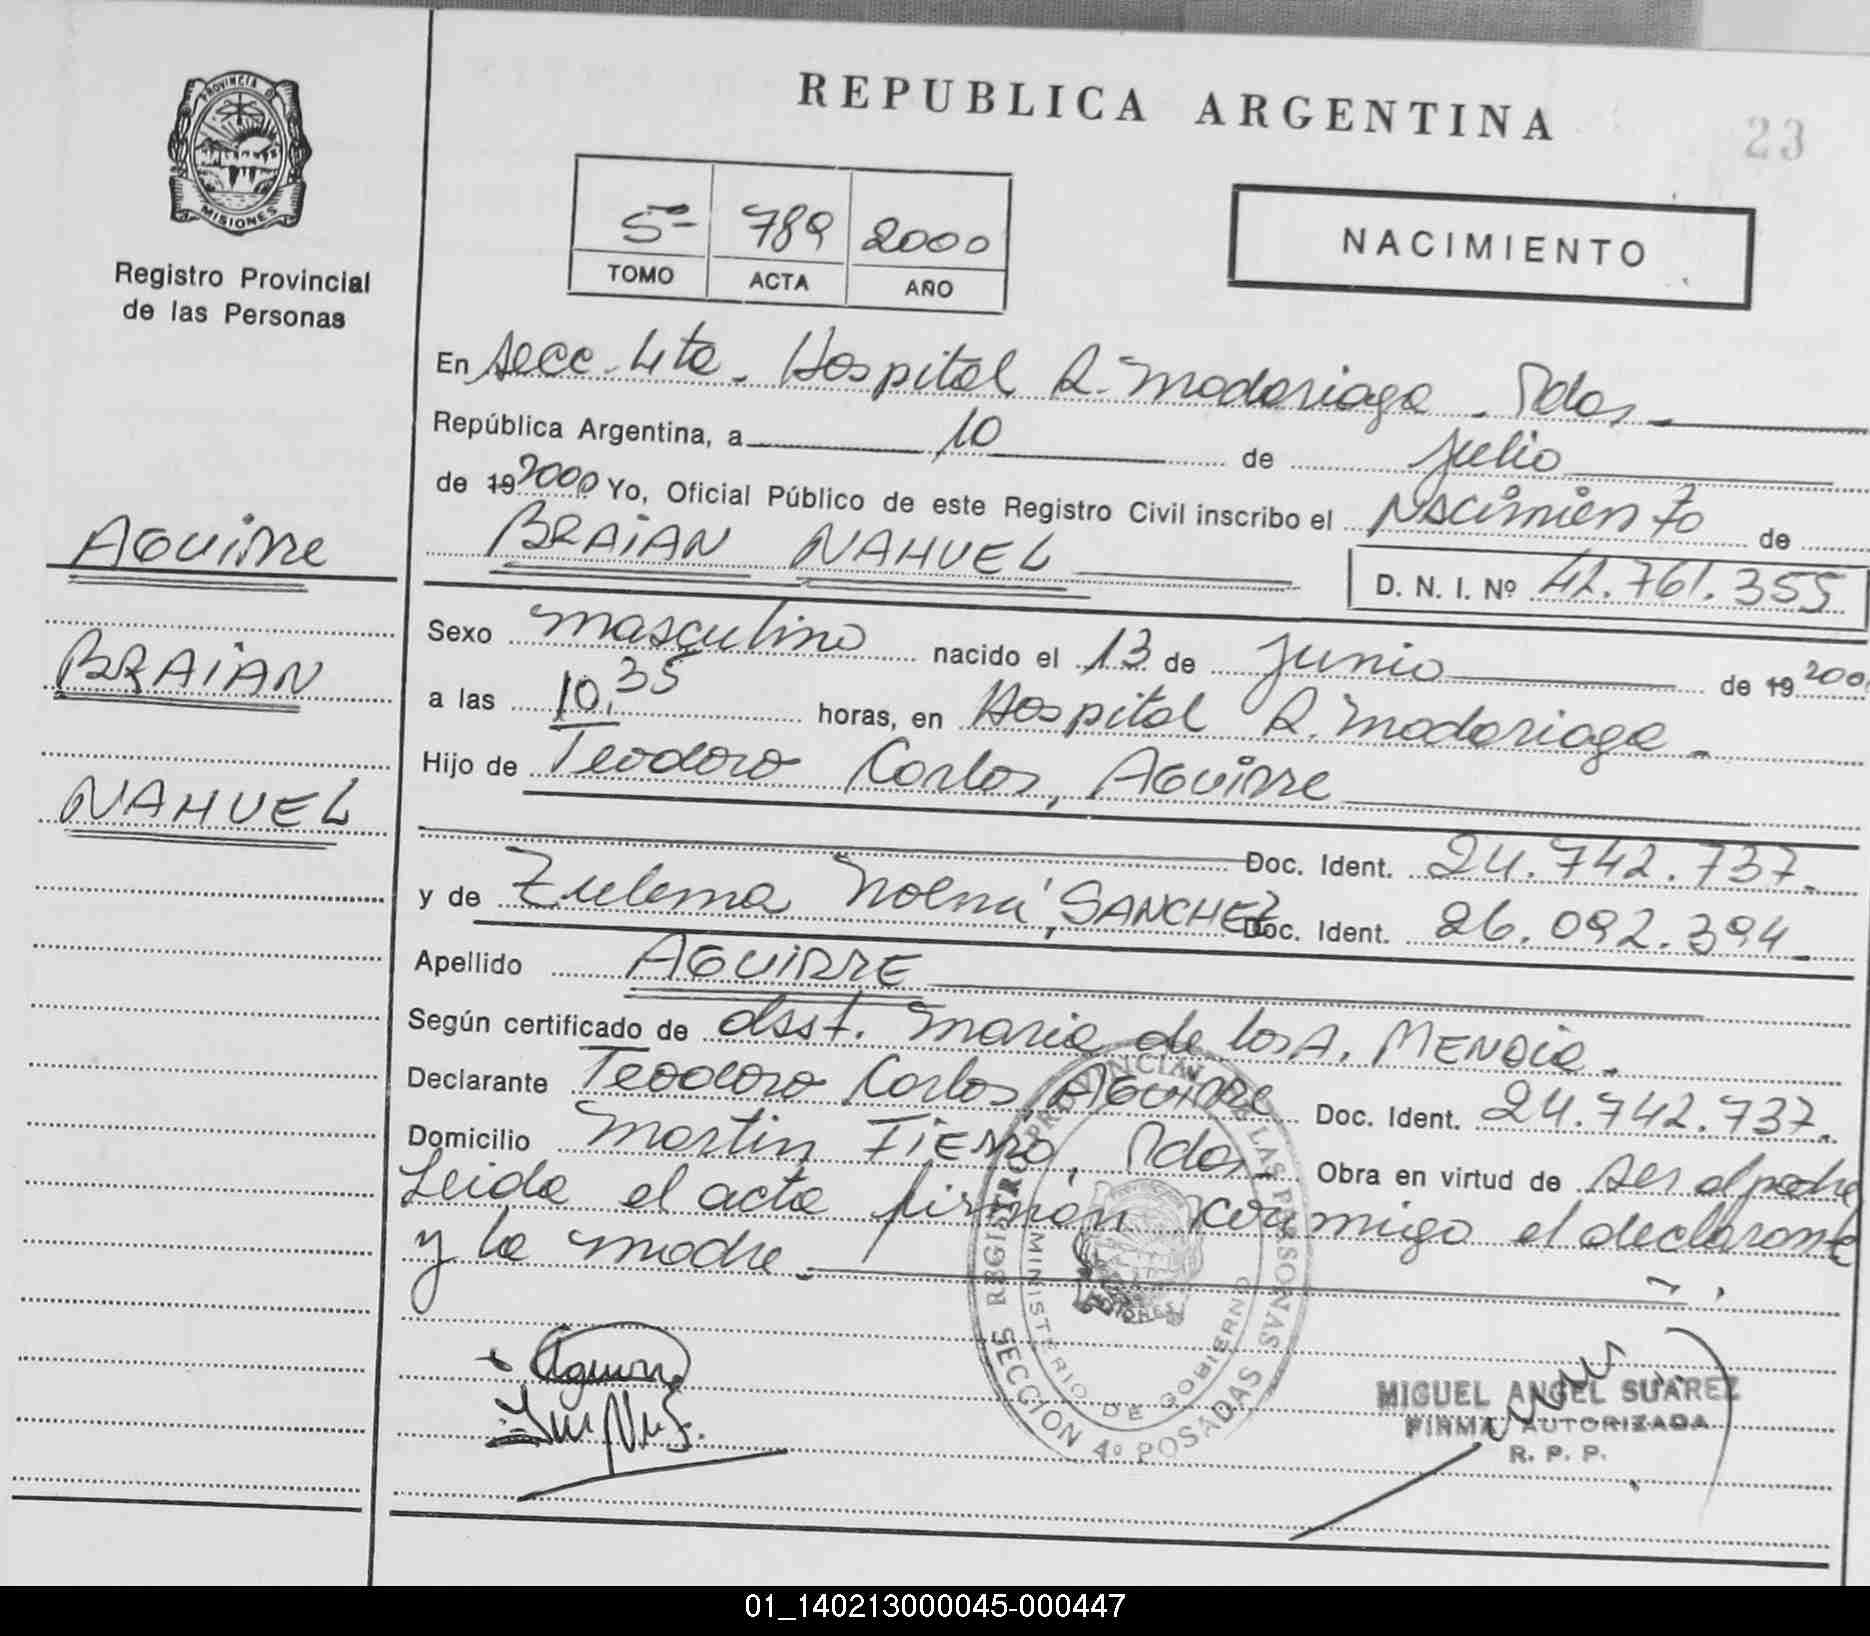 REPUBLICA ARGENTINA
23
PROVINCIA DE
MISIONES
Registro Provincial
de las Personas
5º 789 2000
TOMO ACTA AÑO
NACIMIENTO
En Secc. 4ta. Hospital R. Madariaga. Pdas.
República Argentina, a 10 de Julio
de 19 2000 Yo, Oficial Público de este Registro Civil inscribo el NAcimiento de
BRAIAN NAHUEL
D. N. I. Nº 42.761.355
AGUIRRE
BRAIAN
NAHUEL
Sexo masculino nacido el 13 de junio de 19 2000
a las 10,35 horas, en Hospital R. Madariaga.
Hijo de Teodoro Carlos, AGUIRRE
Doc. Ident. 24.742.737.
y de Zulema Noemí, SANCHEZ Doc. Ident. 26.092.394.
Apellido AGUIRRE
Según certificado de María de los A. MENDIA.
Declarante Teodoro Carlos AGUIRRE Doc. Ident. 24.742.737.
Domicilio Martin FIERRO, Pdas. Obra en virtud de ser el padre
Leida el acta firman conmigo el declarante
y la madre.
REGISTRO PROVINCIAL DE LAS PERSONAS
MINISTERIO DE GOBIERNO
MISIONES
SECCION 4º POSADAS
MIGUEL ANGEL SUAREZ
FIRMA AUTORIZADA
R. P. P.
01_140213000045-000447